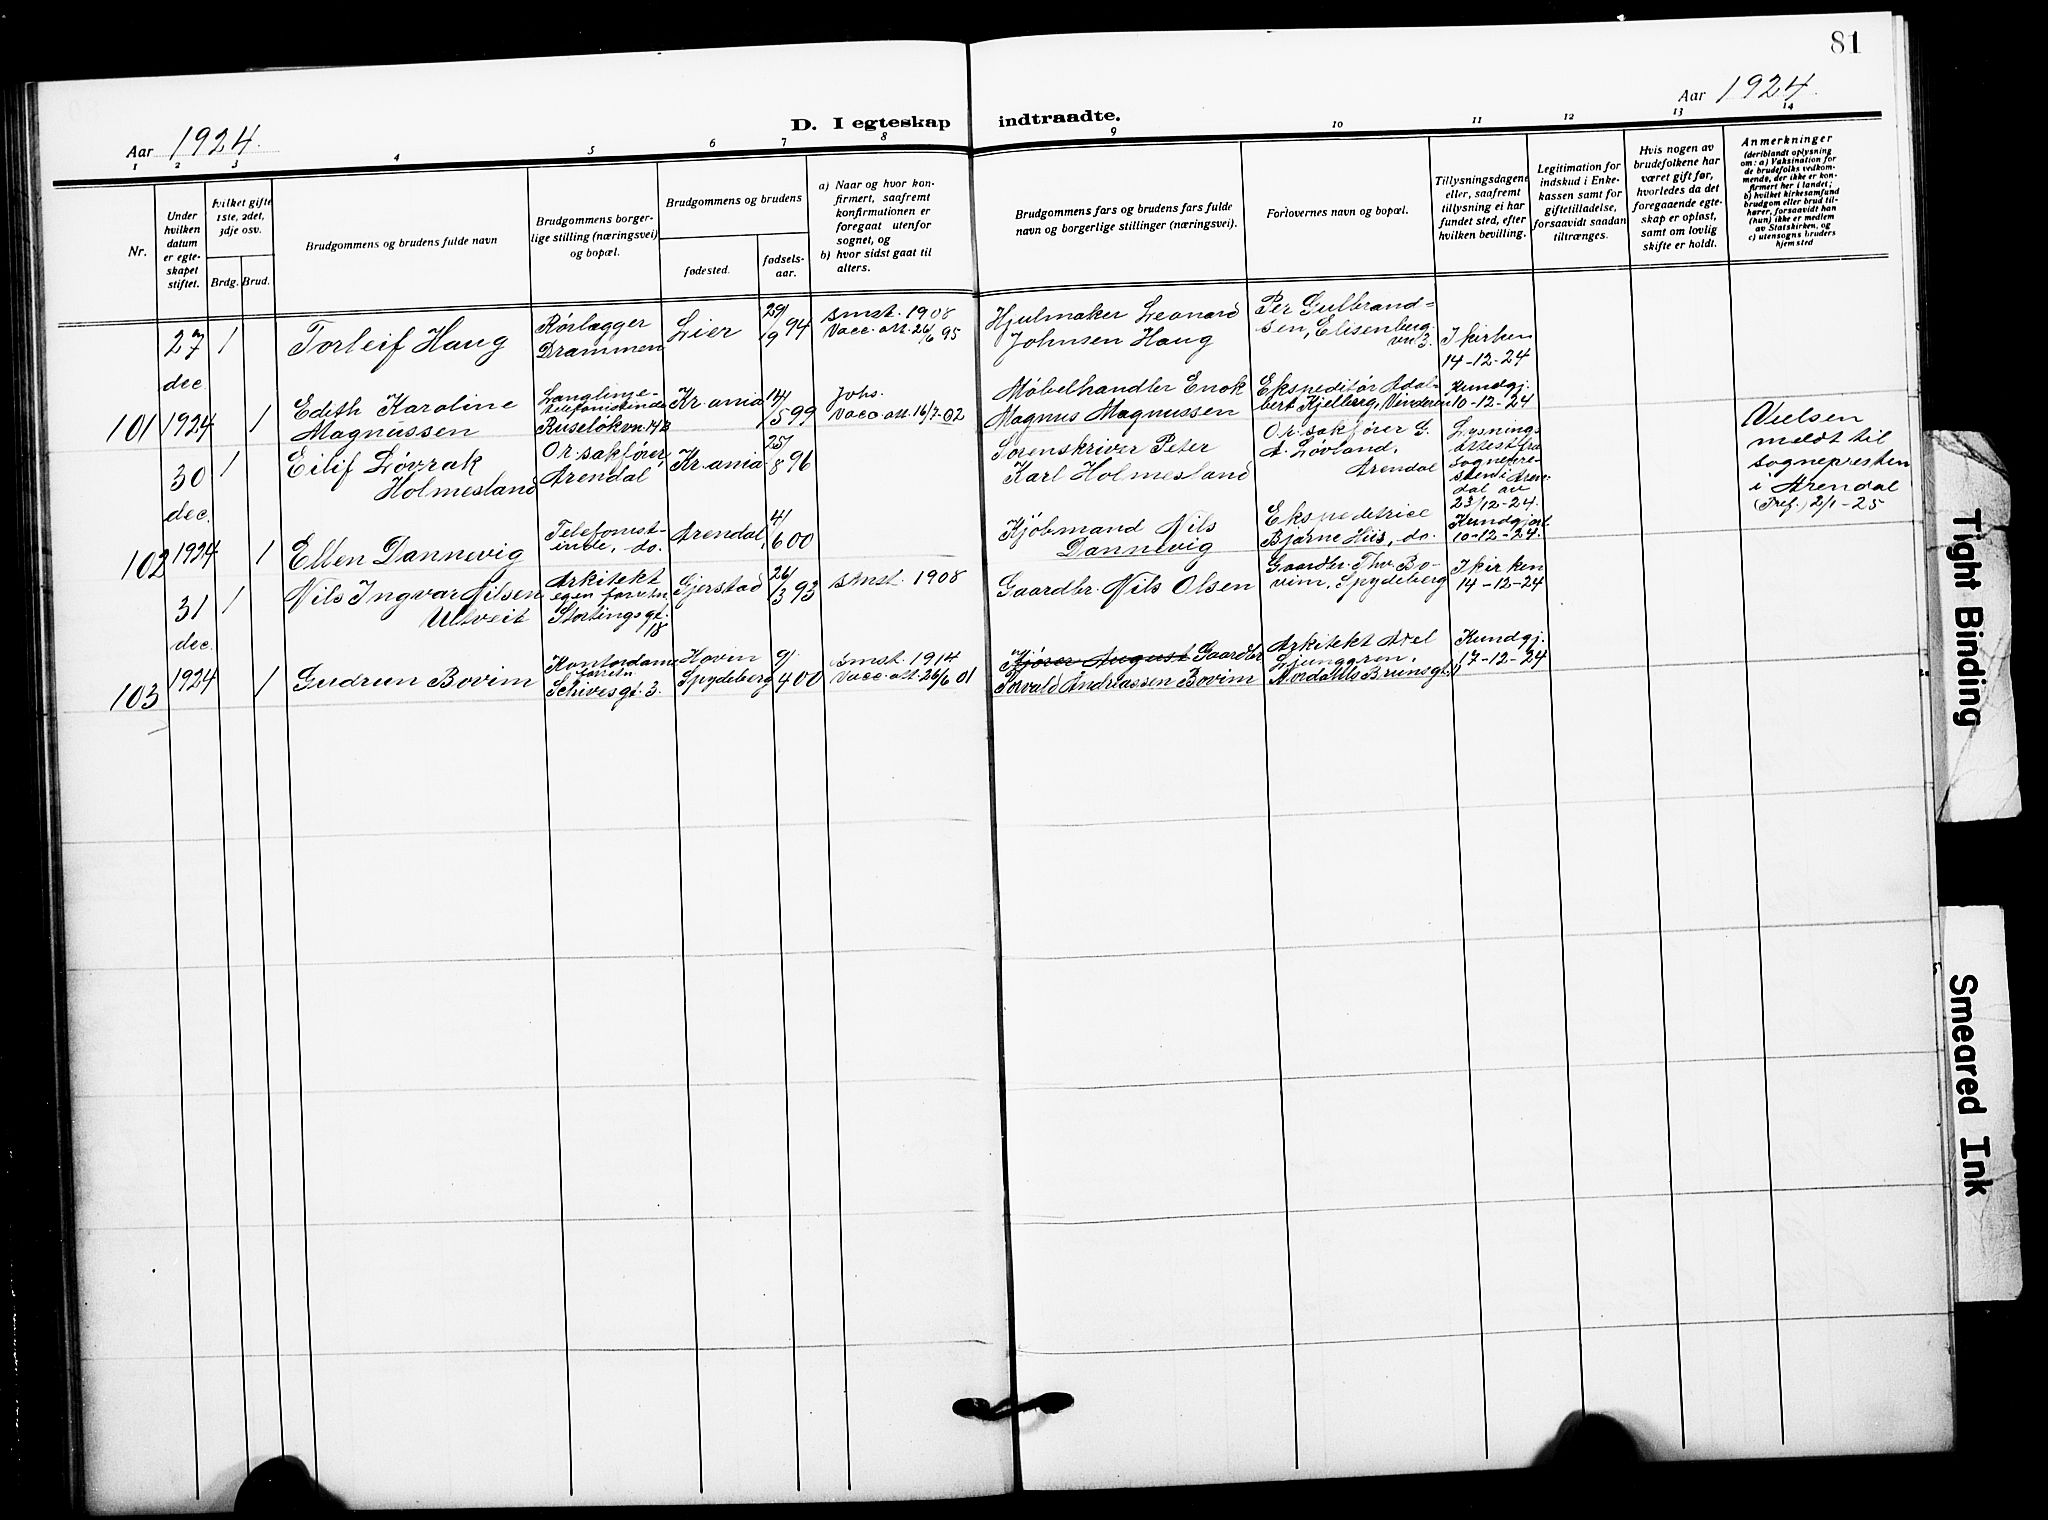 81
Aar 1924.
Aar 1924.
D. I egteskap indtraadte.
1 2 3 4 5 6 7 8 9 10 11 12 13 14
Nr.
Under hvilken datum er egteskapet stiftet.
Hvilket gifte 1ste, 2det, 3dje osv.
Brdg. Brud.
Brudgommens og brudens fulde navn
Brudgommens borgerlige stilling (næringsvei) og bopæl.
Brudgommens og brudens
fødested.
fødselsaar.
a) Naar og hvor konfirmert, saafremt konfirmationen er foregaat utenfor sognet, og
b) hvor sidst gaat til alters.
Brudgommens fars og brudens fars fulde navn og borgerlige stillinger (næringsvei).
Forlovernes navn og bopæl.
Tillysningsdagene eller, saafremt tillysning ei har fundet sted, efter hvilken bevilling.
Legitimation for indskud i Enkekassen samt for giftetilladelse, forsaavidt saadan tiltrænges.
Hvis nogen av brudefolkene har været gift før, hvorledes da det foregaaende egteskap er opløst, samt om lovlig skifte er holdt.
Anmerkninger
(deriblandt oplysning om: a) Vaksination for de brudefolks vedkommende, der ikke er konfirmert her i landet;
b) hvilket kirkesamfund brudgom eller brud tilhører, forsaavidt han (hun) ikke er medlem av Statskirken, og
c) utensogns bruders hjemsted
101
27 dec. 1924
1
Torleif Haug
Rørlægger Drammen
Lier
29/9 94
smst. 1908
Vacc. att. 26/6 95
Hjulmaker Leonard Johnsen Haug
Per Gulbrandsen, Elisenbergvn 3.
I kirken 14-12-24
1
Edith Karoline Magnussen
Langlinjetelefonistinde Ruseløkvn. 14 B
Kr.ania
14/5 99
Johs.
Vacc. att. 16/7-02
Møbelhandler Enok Magnus Magnussen
Ekspeditør Adalbert Kjelberg, Vinderen
Kundgj. 10-12-24
102
30 dec. 1924
1
Eilif Løvrak Holmesland
O.r.sakfører, Arendal
Kr.ania
25/8 96
Sorenskriver Peter Karl Holmesland
O.r.sakfører G. A. Løvland, Arendal
Lysningsattest fra sognepresten i Arendal av 23/12-24.
Vielsen meldt til sognepresten i Arendal (Pref.) 2/1-25
1
Ellen Dannevig
Telefonistinde, do.
Arendal
4/6 00
Kjøbmand Nils Dannevig
Ekspeditrice Bjarne Hiis, do.
Kundgjort. 10-12-24.
103
31 dec. 1924
1
Nils Ingvar Nilsen Utveit
Arkitekt egen forretn. Stortingsgt. 18
Gjerstad
26/3 93
smst. 1908
Gaardbr. Nils Olsen
Gaardbr. Thv. Bovim, Spydeberg
I kirken 14-12-24
1
Gudrun Bovim
Kontordame forretn. Schivesgt. 3.
Hovin Spydeberg
9/4 00
smst. 1914
Vacc. att. 26/6 01
Kjører August Gaardbr. Torvald Andreassen Bovim
Arkitekt Axel Ljunggren, Nordahls Brunsgt.
Kundgj. 17-12-24
Tight Binding
Smeared Ink